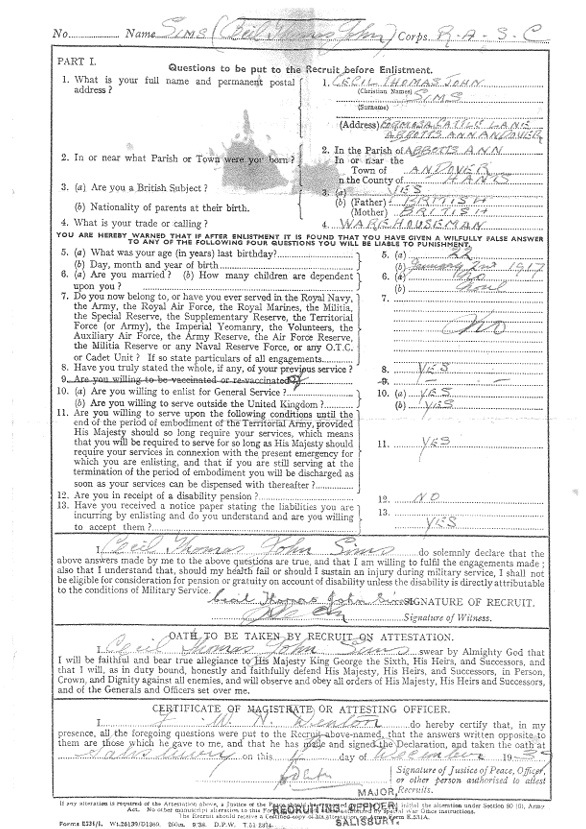 No. Name SIMS (Cecil Thomas John) Corps R. A. S. C
PART I.
Questions to be put to the Recruit before Enlistment.
1. What is your full name and permanent postal address ?
1. CECIL THOMAS JOHN
(Christian Names)
SIMS
(Surname)
(Address) CATTLE LANE
ABBOTTS ANN ANDOVER
2. In or near what Parish or Town were you born ?
2. In the Parish of ABBOTTS ANN
In or near the
Town of ANDOVER
in the County of HANTS
3. (a) Are you a British Subject ?
3. (a) YES
(b) Nationality of parents at their birth.
(b) (Father) BRITISH
(Mother) BRITISH
4. What is your trade or calling ?
4. WAREHOUSEMAN
YOU ARE HEREBY WARNED THAT IF AFTER ENLISTMENT IT IS FOUND THAT YOU HAVE GIVEN A WILFULLY FALSE ANSWER
TO ANY OF THE FOLLOWING FOUR QUESTIONS YOU WILL BE LIABLE TO PUNISHMENT.
5. (a) What was your age (in years) last birthday?
5. (a) 22
(b) Day, month and year of birth
(b) January 2nd 1917
6. (a) Are you married ? (b) How many children are dependent
upon you ?
6. (a) No
(b) None
7. Do you now belong to, or have you ever served in the Royal Navy,
the Army, the Royal Air Force, the Royal Marines, the Militia,
the Special Reserve, the Supplementary Reserve, the Territorial
Force (or Army), the Imperial Yeomanry, the Volunteers, the
Auxiliary Air Force, the Army Reserve, the Air Force Reserve,
the Militia Reserve or any Naval Reserve Force, or any O.T.C.
or Cadet Unit ? If so state particulars of all engagements
7. No
8. Have you truly stated the whole, if any, of your previous service ?
8. YES
9. Are you willing to be vaccinated or re-vaccinated ?
9. -
10. (a) Are you willing to enlist for General Service ?
10. (a) YES
(b) Are you willing to serve outside the United Kingdom ?
(b) YES
11. Are you willing to serve upon the following conditions until the
end of the period of embodiment of the Territorial Army, provided
His Majesty should so long require your services, which means
that you will be required to serve for so long as His Majesty should
require your services in connexion with the present emergency for
which you are enlisting, and that if you are still serving at the
termination of the period of embodiment you will be discharged as
soon as your services can be dispensed with thereafter ?
11. YES
12. Are you in receipt of a disability pension ?
12. NO
13. Have you received a notice paper stating the liabilities you are
incurring by enlisting and do you understand and are you willing
to accept them ?
13. YES
I Cecil Thomas John Sims do solemnly declare that the
above answers made by me to the above questions are true, and that I am willing to fulfil the engagements made ;
also that I understand that, should my health fail or should I sustain an injury during military service, I shall not
be eligible for consideration for pension or gratuity on account of disability unless the disability is directly attributable
to the conditions of Military Service.
Cecil Thomas John Sims SIGNATURE OF RECRUIT.
Signature of Witness.
OATH TO BE TAKEN BY RECRUIT ON ATTESTATION.
I Cecil Thomas John Sims swear by Almighty God that
I will be faithful and bear true allegiance to His Majesty King George the Sixth, His Heirs, and Successors, and
that I will, as in duty bound, honestly and faithfully defend His Majesty, His Heirs, and Successors, in Person,
Crown, and Dignity against all enemies, and will observe and obey all orders of His Majesty, His Heirs and Successors,
and of the Generals and Officers set over me.
CERTIFICATE OF MAGISTRATE OR ATTESTING OFFICER.
I W. N. Denton do hereby certify that, in my
presence, all the foregoing questions were put to the Recruit above-named, that the answers written opposite to
them are those which he gave to me, and that he has made and signed the Declaration, and taken the oath at
Salisbury on this day of December 1939
Signature of Justice of Peace, Officer,
or other person authorised to attest
MAJOR, Recruits.
RECRUITING OFFICER
SALISBURY.
If any alteration is required of the Attestation above, a Justice of the Peace initial the alteration under Section 80 (6), Army
Act. No other manuscript alteration to this Form War Office instructions.
The Recruit should receive a Certified copy of his Attestation on Army Form E.531A.
Forms E531/1.